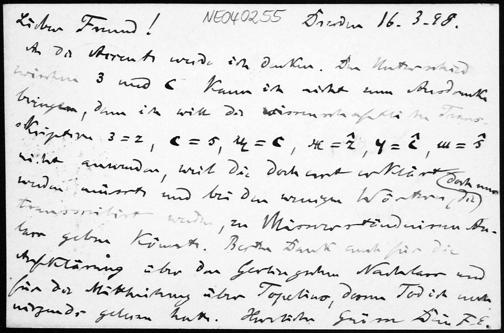 Lieber Freund! NE040255 Dresden 16.3.98.
An die Accente werde ich denken. Den Unterschied
zwischen З und С kann ich nicht zum Ausdruck
bringen, denn ich will die wissenschaftliche Trans-
skription З=z, С=s, ц=c, ж=ẑ, ч=ĉ, ш=ŝ
nicht anwenden, weil die doch erst erklärt (doch nur
werden müsste und bei den wenigen Wörtern, die
transscribiert werden, zu Missverständnissen An-
lass geben könnte. Besten Dank auch für die
Aufklärung über den Nachlass und
für die Mittheilung über Topelius, dessen Tod ich noch
nirgends gelesen hatte. Herzliche Grüsse Dein F.E.